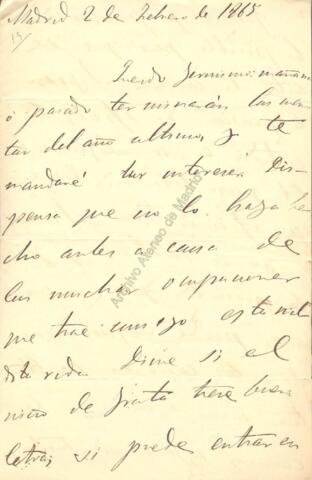 Madrid 2 de Febrero de 1865
Querido Jerónimo: mañana
ó pasado terminarán las cuen
tas del año ultimo, y te
mandaré tus intereses. Dis-
pensa que no lo haya he
cho antes a causa de
las muchas ocupaciones
que trae consigo esta mal
dita vida. Dime si el
niño de tiene buena
letra, si puede entrar en
Archivo Ateneo de Madrid